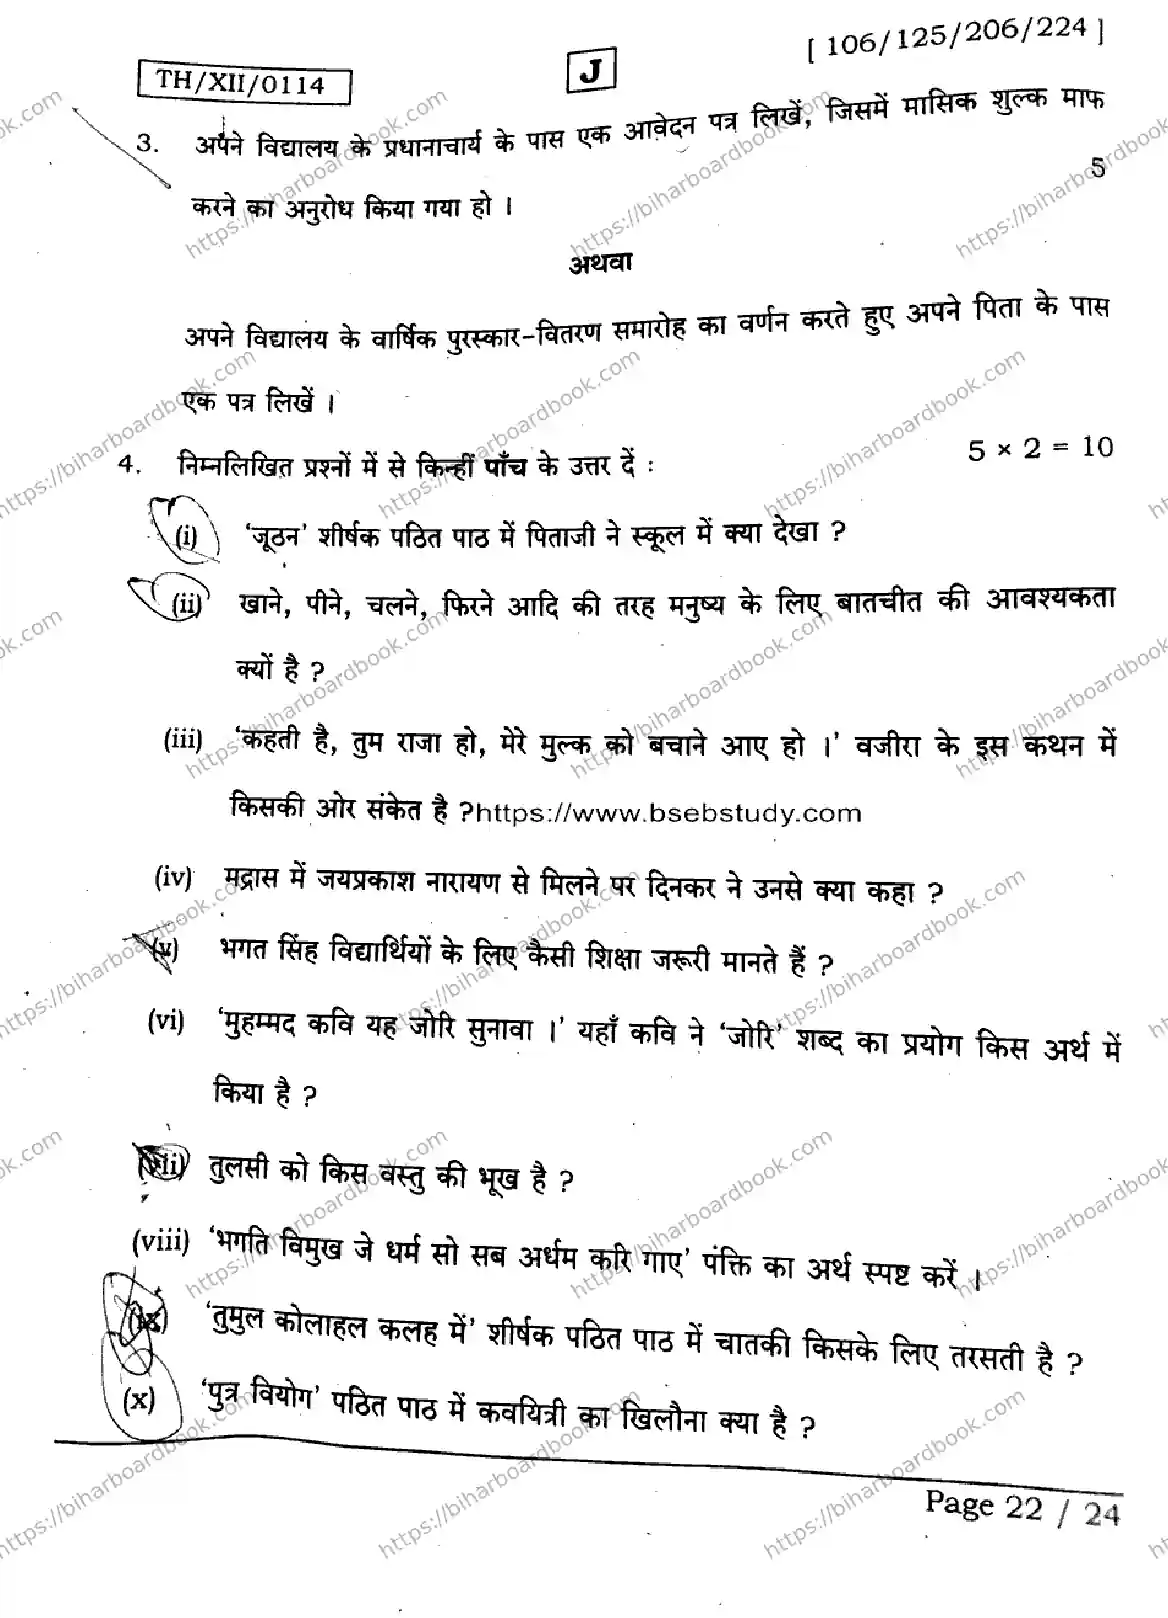 [ 106/125/206/224 ]
TH/XII/0114
J
3. अपने विद्यालय के प्रधानाचार्य के पास एक आवेदन पत्र लिखें, जिसमें मासिक शुल्क माफ
करने का अनुरोध किया गया हो ।
5
अथवा
अपने विद्यालय के वार्षिक पुरस्कार-वितरण समारोह का वर्णन करते हुए अपने पिता के पास
एक पत्र लिखें ।
4. निम्नलिखित प्रश्नों में से किन्हीं पाँच के उत्तर दें : 5 × 2 = 10
(i) 'जूठन' शीर्षक पठित पाठ में पिताजी ने स्कूल में क्या देखा ?
(ii) खाने, पीने, चलने, फिरने आदि की तरह मनुष्य के लिए बातचीत की आवश्यकता
क्यों है ?
(iii) 'कहती है, तुम राजा हो, मेरे मुल्क को बचाने आए हो ।' वजीरा के इस कथन में
किसकी ओर संकेत है ?https://www.bsebstudy.com
(iv) मद्रास में जयप्रकाश नारायण से मिलने पर दिनकर ने उनसे क्या कहा ?
(v) भगत सिंह विद्यार्थियों के लिए कैसी शिक्षा जरूरी मानते हैं ?
(vi) 'मुहम्मद कवि यह जोरि सुनावा ।' यहाँ कवि ने 'जोरि' शब्द का प्रयोग किस अर्थ में
किया है ?
(vii) तुलसी को किस वस्तु की भूख है ?
(viii) 'भगति विमुख जे धर्म सो सब अर्धम करि गाए' पंक्ति का अर्थ स्पष्ट करें ।
(ix) 'तुमुल कोलाहल कलह में' शीर्षक पठित पाठ में चातकी किसके लिए तरसती है ?
(x) 'पुत्र वियोग' पठित पाठ में कवयित्री का खिलौना क्या है ?
Page 22 / 24
https://biharboardbook.com